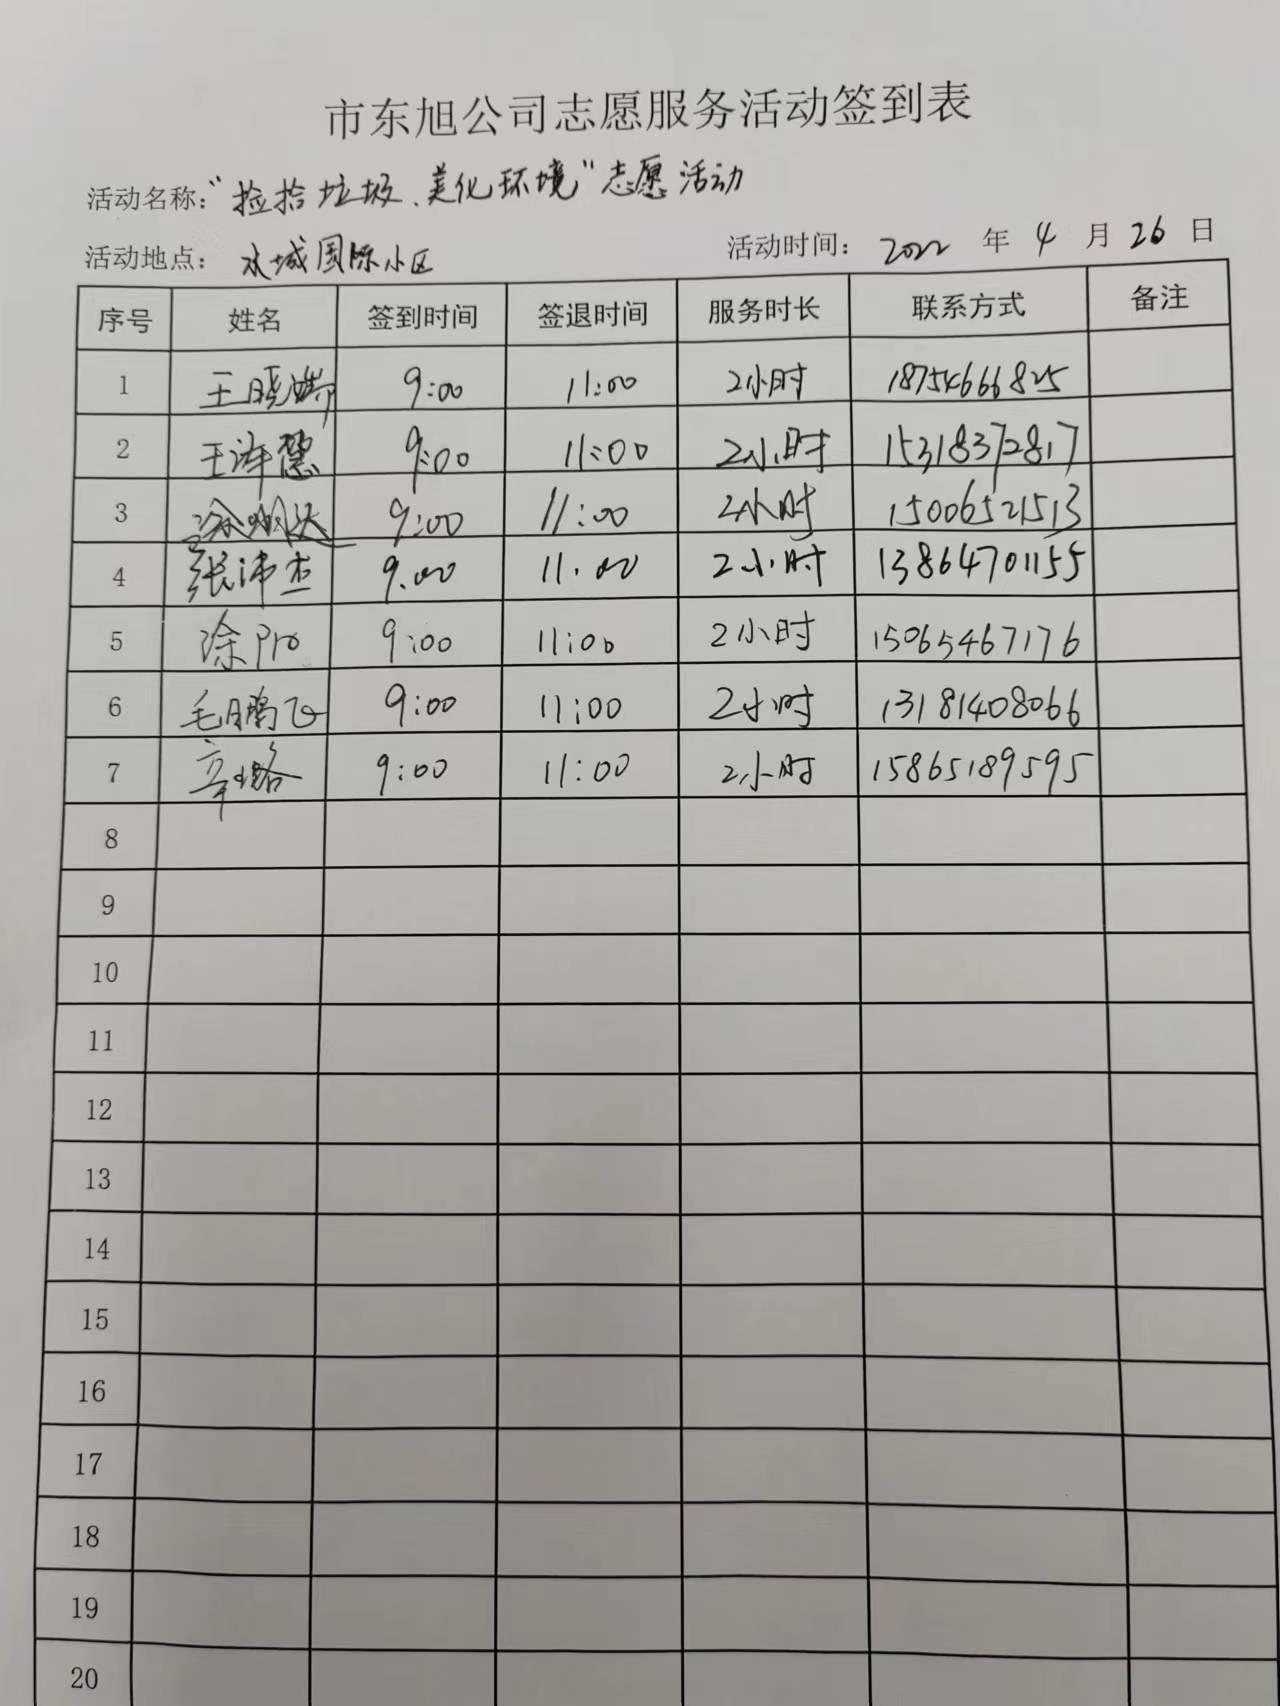 市东旭公司志愿服务活动签到表
活动名称：“捡拾垃圾、美化环境”志愿活动
活动地点： 水城国际小区 活动时间： 2022 年 4 月 26 日
序号 姓名 签到时间 签退时间 服务时长 联系方式 备注
1 王晓 9:00 11:00 2小时 18754666825
2 王泽慧 9:00 11:00 2小时 15318372817
3 9:00 11:00 2小时 15006521513
4 张沛杰 9:00 11:00 2小时 13864701155
5 涂 9:00 11:00 2小时 15065467176
6 毛鹏飞 9:00 11:00 2小时 13181408066
7 辛璐 9:00 11:00 2小时 15865189595
8
9
10
11
12
13
14
15
16
17
18
19
20